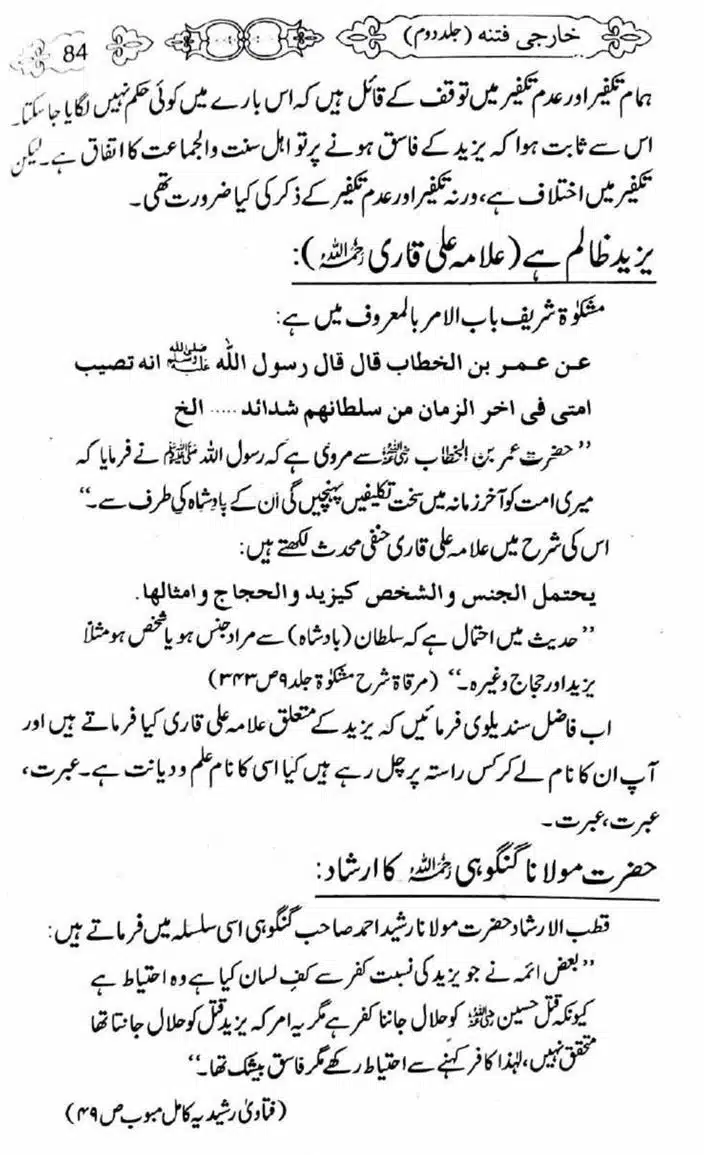 خارجی فتنہ (جلد دوم)
84
ہمام تکفیر اور عدم تکفیر میں توقف کے قائل ہیں کہ اس بارے میں کوئی حکم نہیں لگایا جا سکتا۔
اس سے ثابت ہوا کہ یزید کے فاسق ہونے پر تو اہل سنت والجماعت کا اتفاق ہے۔ لیکن
تکفیر میں اختلاف ہے، ورنہ تکفیر اور عدم تکفیر کے ذکر کی کیا ضرورت تھی۔
یزید ظالم ہے (علامہ علی قاری رحمہ اللہ):
مشکوٰۃ شریف باب الامر بالمعروف میں ہے:
عن عمر بن الخطاب قال قال رسول اللہ ﷺ انه تصیب
امتی فی اخر الزمان من سلطانهم شدائد ..... الخ
”حضرت عمر بن الخطاب رضی اللہ عنہ سے مروی ہے کہ رسول اللہ ﷺ نے فرمایا کہ
میری امت کو آخر زمانہ میں سخت تکلیفیں پہنچیں گی ان کے بادشاہ کی طرف سے۔“
اس کی شرح میں علامہ علی قاری حنفی محدث لکھتے ہیں:
یحتمل الجنس والشخص کیزید والحجاج وامثالها.
”حدیث میں احتمال ہے کہ سلطان (بادشاہ) سے مراد جنس ہو یا شخص ہو مثلاً
یزید اور حجاج وغیرہ۔“ (مرقاۃ شرح مشکوٰۃ جلد ۹ ص ۳۴۳)
اب فاضل سندیلوی فرمائیں کہ یزید کے متعلق علامہ علی قاری کیا فرماتے ہیں اور
آپ ان کا نام لے کر کس راستہ پر چل رہے ہیں کیا اسی کا نام علم و دیانت ہے۔ عبرت،
عبرت، عبرت۔
حضرت مولانا گنگوہی رحمہ اللہ کا ارشاد:
قطب الارشاد حضرت مولانا رشید احمد صاحب گنگوہی اسی سلسلہ میں فرماتے ہیں:
”بعض ائمہ نے جو یزید کی نسبت کفر سے کف لسان کیا ہے وہ احتیاط ہے
کیونکہ قتل حسین رضی اللہ عنہ کو حلال جاننا کفر ہے مگر یہ امر کہ یزید قتل کو حلال جانتا تھا
متحقق نہیں، لہٰذا کافر کہنے سے احتیاط رکھے مگر فاسق بیشک تھا۔“
(فتاویٰ رشیدیہ کامل مبوب ص ۴۹)